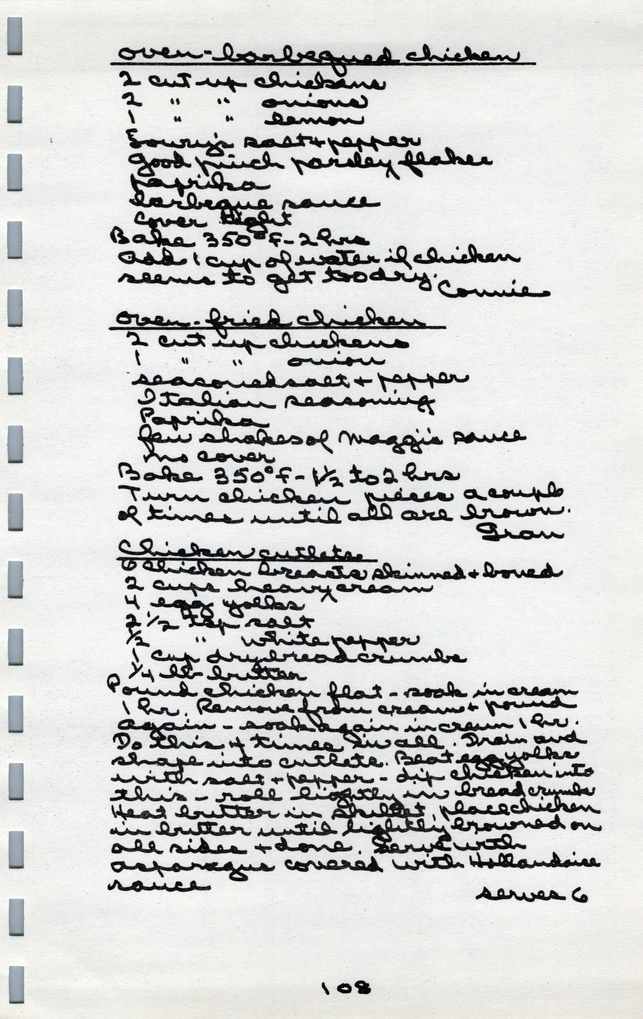 oven-barbequed chicken
2 cut up chickens
2 " " onions
1 " " lemon
Lowry's salt + pepper
good pinch parsley flakes
paprika
barbeque sauce
cover tight
Bake 350°F - 2 hrs
add 1 cup of water if chicken
seems to get too dry.
Connie
oven-fried chicken
2 cut up chickens
1 " " onion
seasoned salt + pepper
Italian seasoning
Paprika
few shakes of Maggi's sauce
no cover
Bake 350°F - 1 1/2 to 2 hrs
Turn chicken pieces a couple
of times until all are brown.
Gran
Chicken cutlets
6 chicken breasts skinned + boned
2 cups heavy cream
4 egg yolks
2 1/2 tsp salt
1/2 " white pepper
1 cup dry bread crumbs
1/4 lb butter
Pound chicken flat - soak in cream
1 hr. Remove from cream + pound
again - soak again in cream 1 hr.
Do this 4 times in all. Drain and
shape into cutlets. Beat egg yolks
with salt + pepper - dip chicken into
this - roll lightly in bread crumbs
Heat butter in skillet, place chicken
in butter until lightly browned on
all sides + done. Serve with
asparagus covered with Hollandaise
sauce
serves 6
108